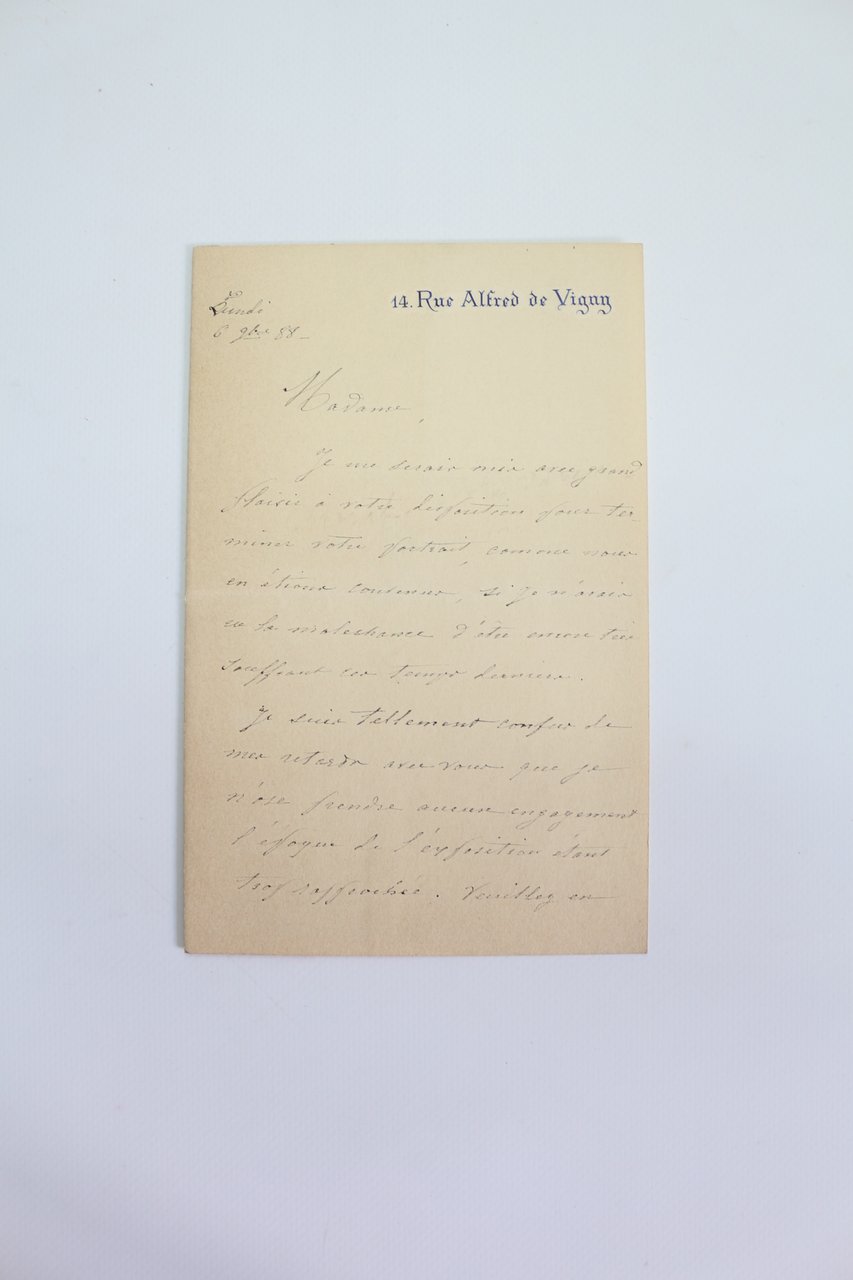 14. Rue Alfred de Vigny
Lundi
6 9bre 88 -
Madame,
Je me serais mis avec grand
plaisir à votre disposition pour ter-
miner votre portrait, comme nous
en étions convenus, si je n'avais
eu la malechance d'être encore très
souffrant ces temps derniers.
Je suis tellement confus de
mes retards avec vous que je
n'ose prendre aucun engagement
l'époque de l'exposition étant
trop rapprochée. Veuillez en